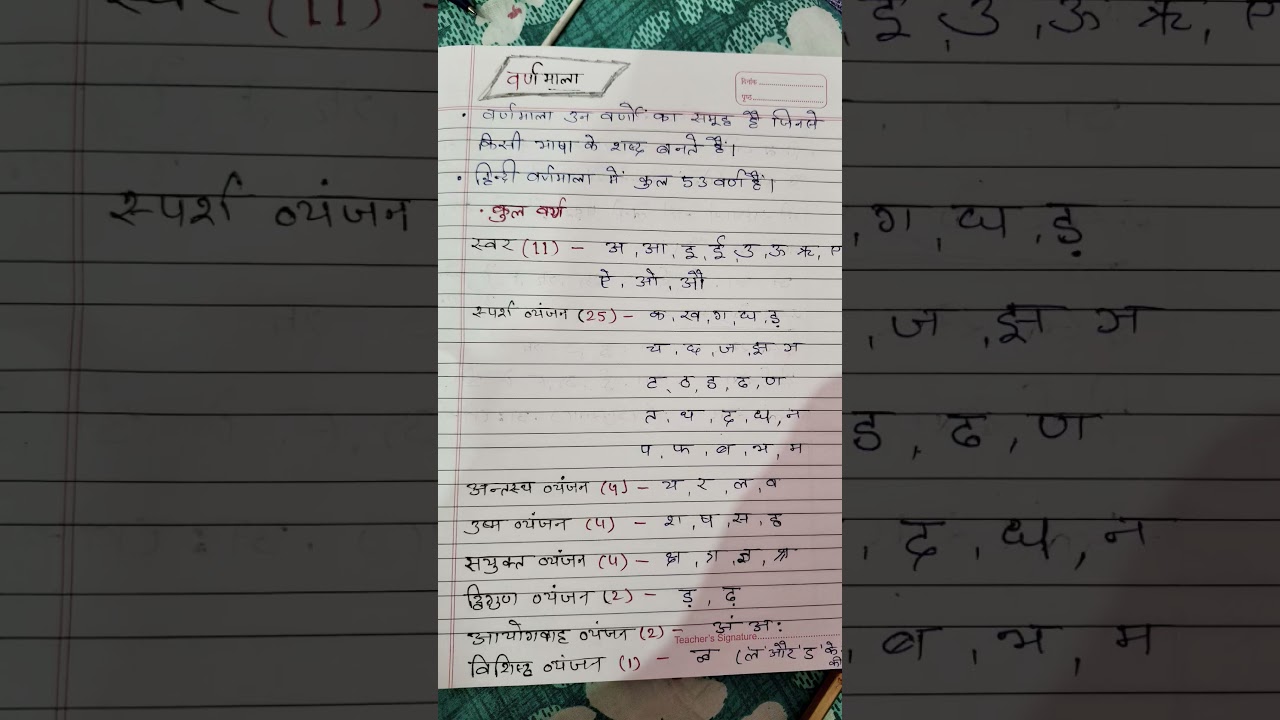 वर्णमाला
दिनांक
पृष्ठ
• वर्णमाला उन वर्णों का समूह है जिनसे
किसी भाषा के शब्द बनते हैं।
• हिन्दी वर्णमाला में कुल 53 वर्ण हैं।
• कुल वर्ण
स्वर (11) – अ, आ, इ, ई, उ, ऊ ऋ, ए
ऐ, ओ, औ
स्पर्श व्यंजन (25) – क, ख, ग, घ, ड़
च, छ, ज, झ ञ
ट, ठ, ड, ढ, ण
त, थ, द, ध, न
प, फ, ब, भ, म
अन्तस्थ व्यंजन (4) – य, र, ल, व
उष्म व्यंजन (4) – श, ष, स, ह
सयुक्त व्यंजन (4) – क्ष, त्र, ज्ञ, श्र
द्विगुण व्यंजन (2) – ड़, ढ़
आयोगवाह व्यंजन (2) – अं अः
Teacher's Signature
विशिष्ट व्यंजन (1) – ळ (ल और ड के